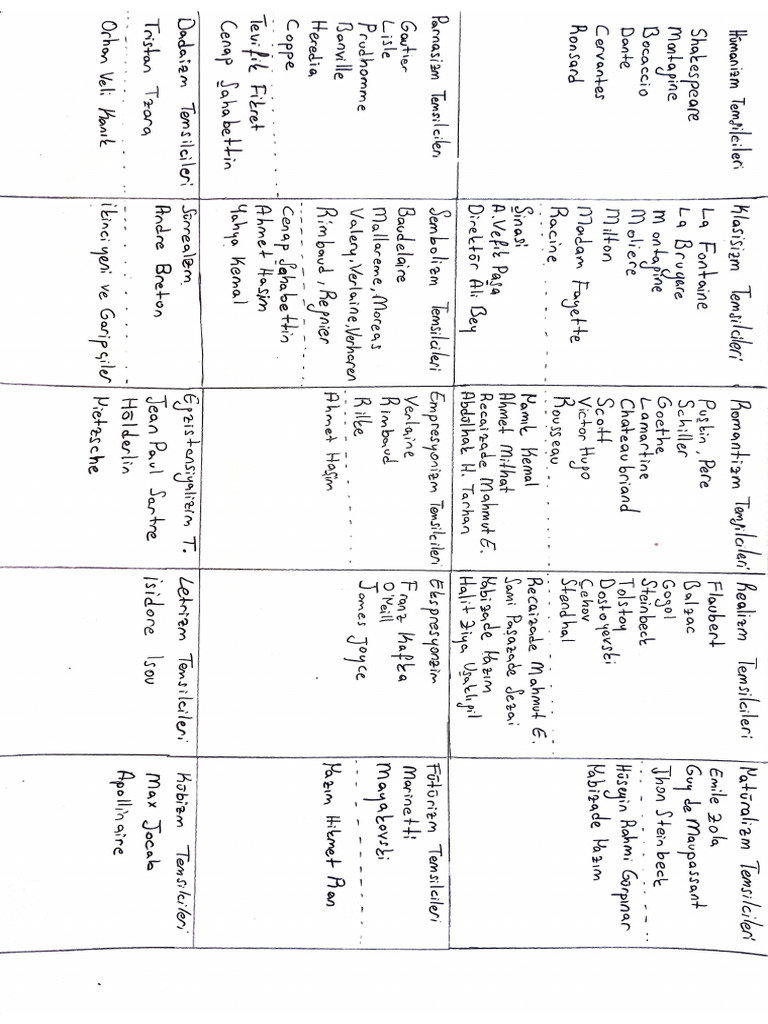 Hümanizm Temsilcileri
Shakespeare
Montagine
Bocaccio
Dante
Cervantes
Ronsard
Klasisizm Temsilcileri
La Fontaine
La Bruyare
Montagine
Moliere
Milton
Madam Fayette
Racine
Şinasi
A. Vefik Paşa
Direktör Ali Bey
Romantizm Temsilcileri
Puşkin, Pere
Schiller
Goethe
Lamartine
Chateaubriand
Scott
Victor Hugo
Rousseau
Namık Kemal
Ahmet Mithat
Recaizade Mahmut E.
Abdülhak H. Tarhan
Realizm Temsilcileri
Flaubert
Balzac
Gogol
Steinbeck
Tolstoy
Dostoyevski
Çehov
Stendhal
Recaizade Mahmut E.
Sami Paşazade Sezai
Nabizade Nazım
Halit Ziya Uşaklıgil
Natüralizm Temsilcileri
Emile Zola
Guy de Maupassant
Jhon Steinbeck
Hüseyin Rahmi Gürpınar
Nabizade Nazım
Parnasizm Temsilcileri
Gautier
Lisle
Prudhomme
Banville
Heredia
Coppe
Tevfik Fikret
Cenap Şahabettin
Sembolizm Temsilcileri
Baudelaire
Mallareme, Moreas
Valery, Verlaine, Verharen
Rimbaud, Regnier
Cenap Şahabettin
Ahmet Haşim
Yahya Kemal
Empresyonizm Temsilcileri
Verlaine
Rimbaud
Rilke
Ahmet Haşim
Ekspresyonizm
Franz Kafka
O'Neill
James Joyce
Fütürizm Temsilcileri
Marinetti
Mayakovski
Nazım Hikmet Ran
Dadaizm Temsilcileri
Tristan Tzara
Orhan Veli Kanık
Sürrealizm
Andre Breton
İkinci yeni ve Garipçiler
Egzistansiyalizm T.
Jean Paul Sartre
Hölderlin
Nietzsche
Letrizm Temsilcileri
İsidore Isou
Kübizm Temsilcileri
Max Jocab
Apollinaire